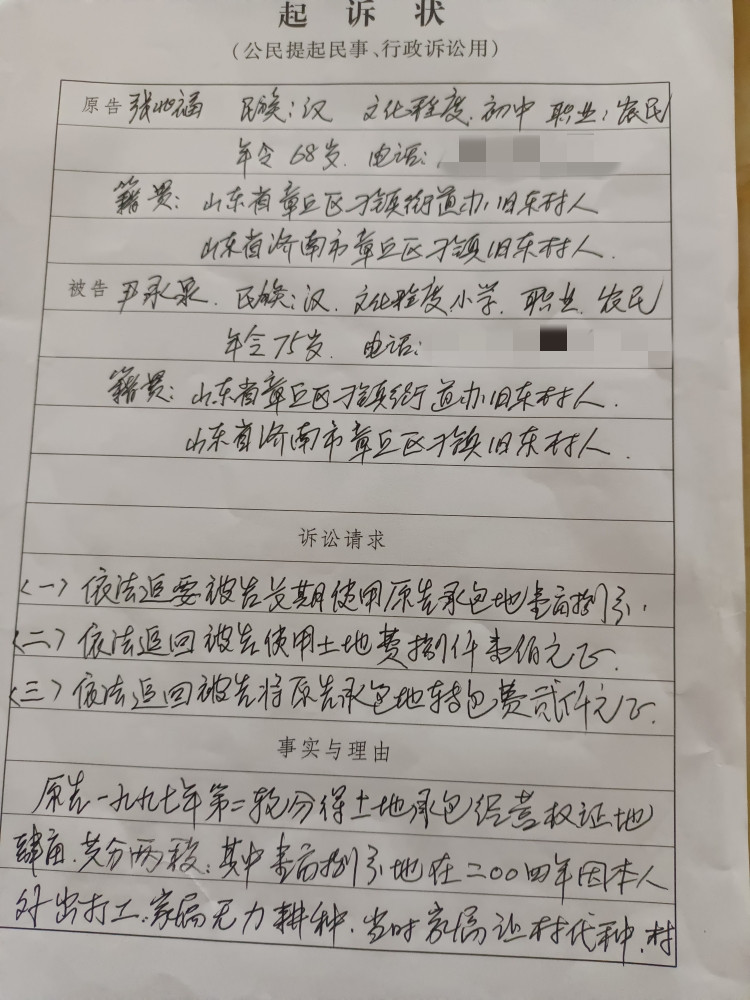 起诉状
(公民提起民事、行政诉讼用)
原告 张兆福 民族:汉 文化程度.初中 职业:农民
年令68岁. 电话:
籍贯:山东省章丘区刁镇街道办旧东村人
山东省济南市章丘区刁镇旧东村人.
被告 尹承泉. 民族:汉. 文化程度,小学. 职业.农民
年令75岁. 电话:
籍贯:山东省章丘区刁镇街道办旧东村人.
山东省济南市章丘区刁镇旧东村人.
诉讼请求
(一)依法追要被告长期使用原告承包地壹亩捌分.
(二)依法追回被告使用土地费捌仟壹佰元正.
(三)依法追回被告将原告承包地转包费贰仟元正.
事实与理由
原告一九九七年第二轮分得土地承包经营权证地
肆亩.共分两段:其中壹亩捌分地在二00四年因本人
外出打工.家属无力耕种.当时家属让村代种.村